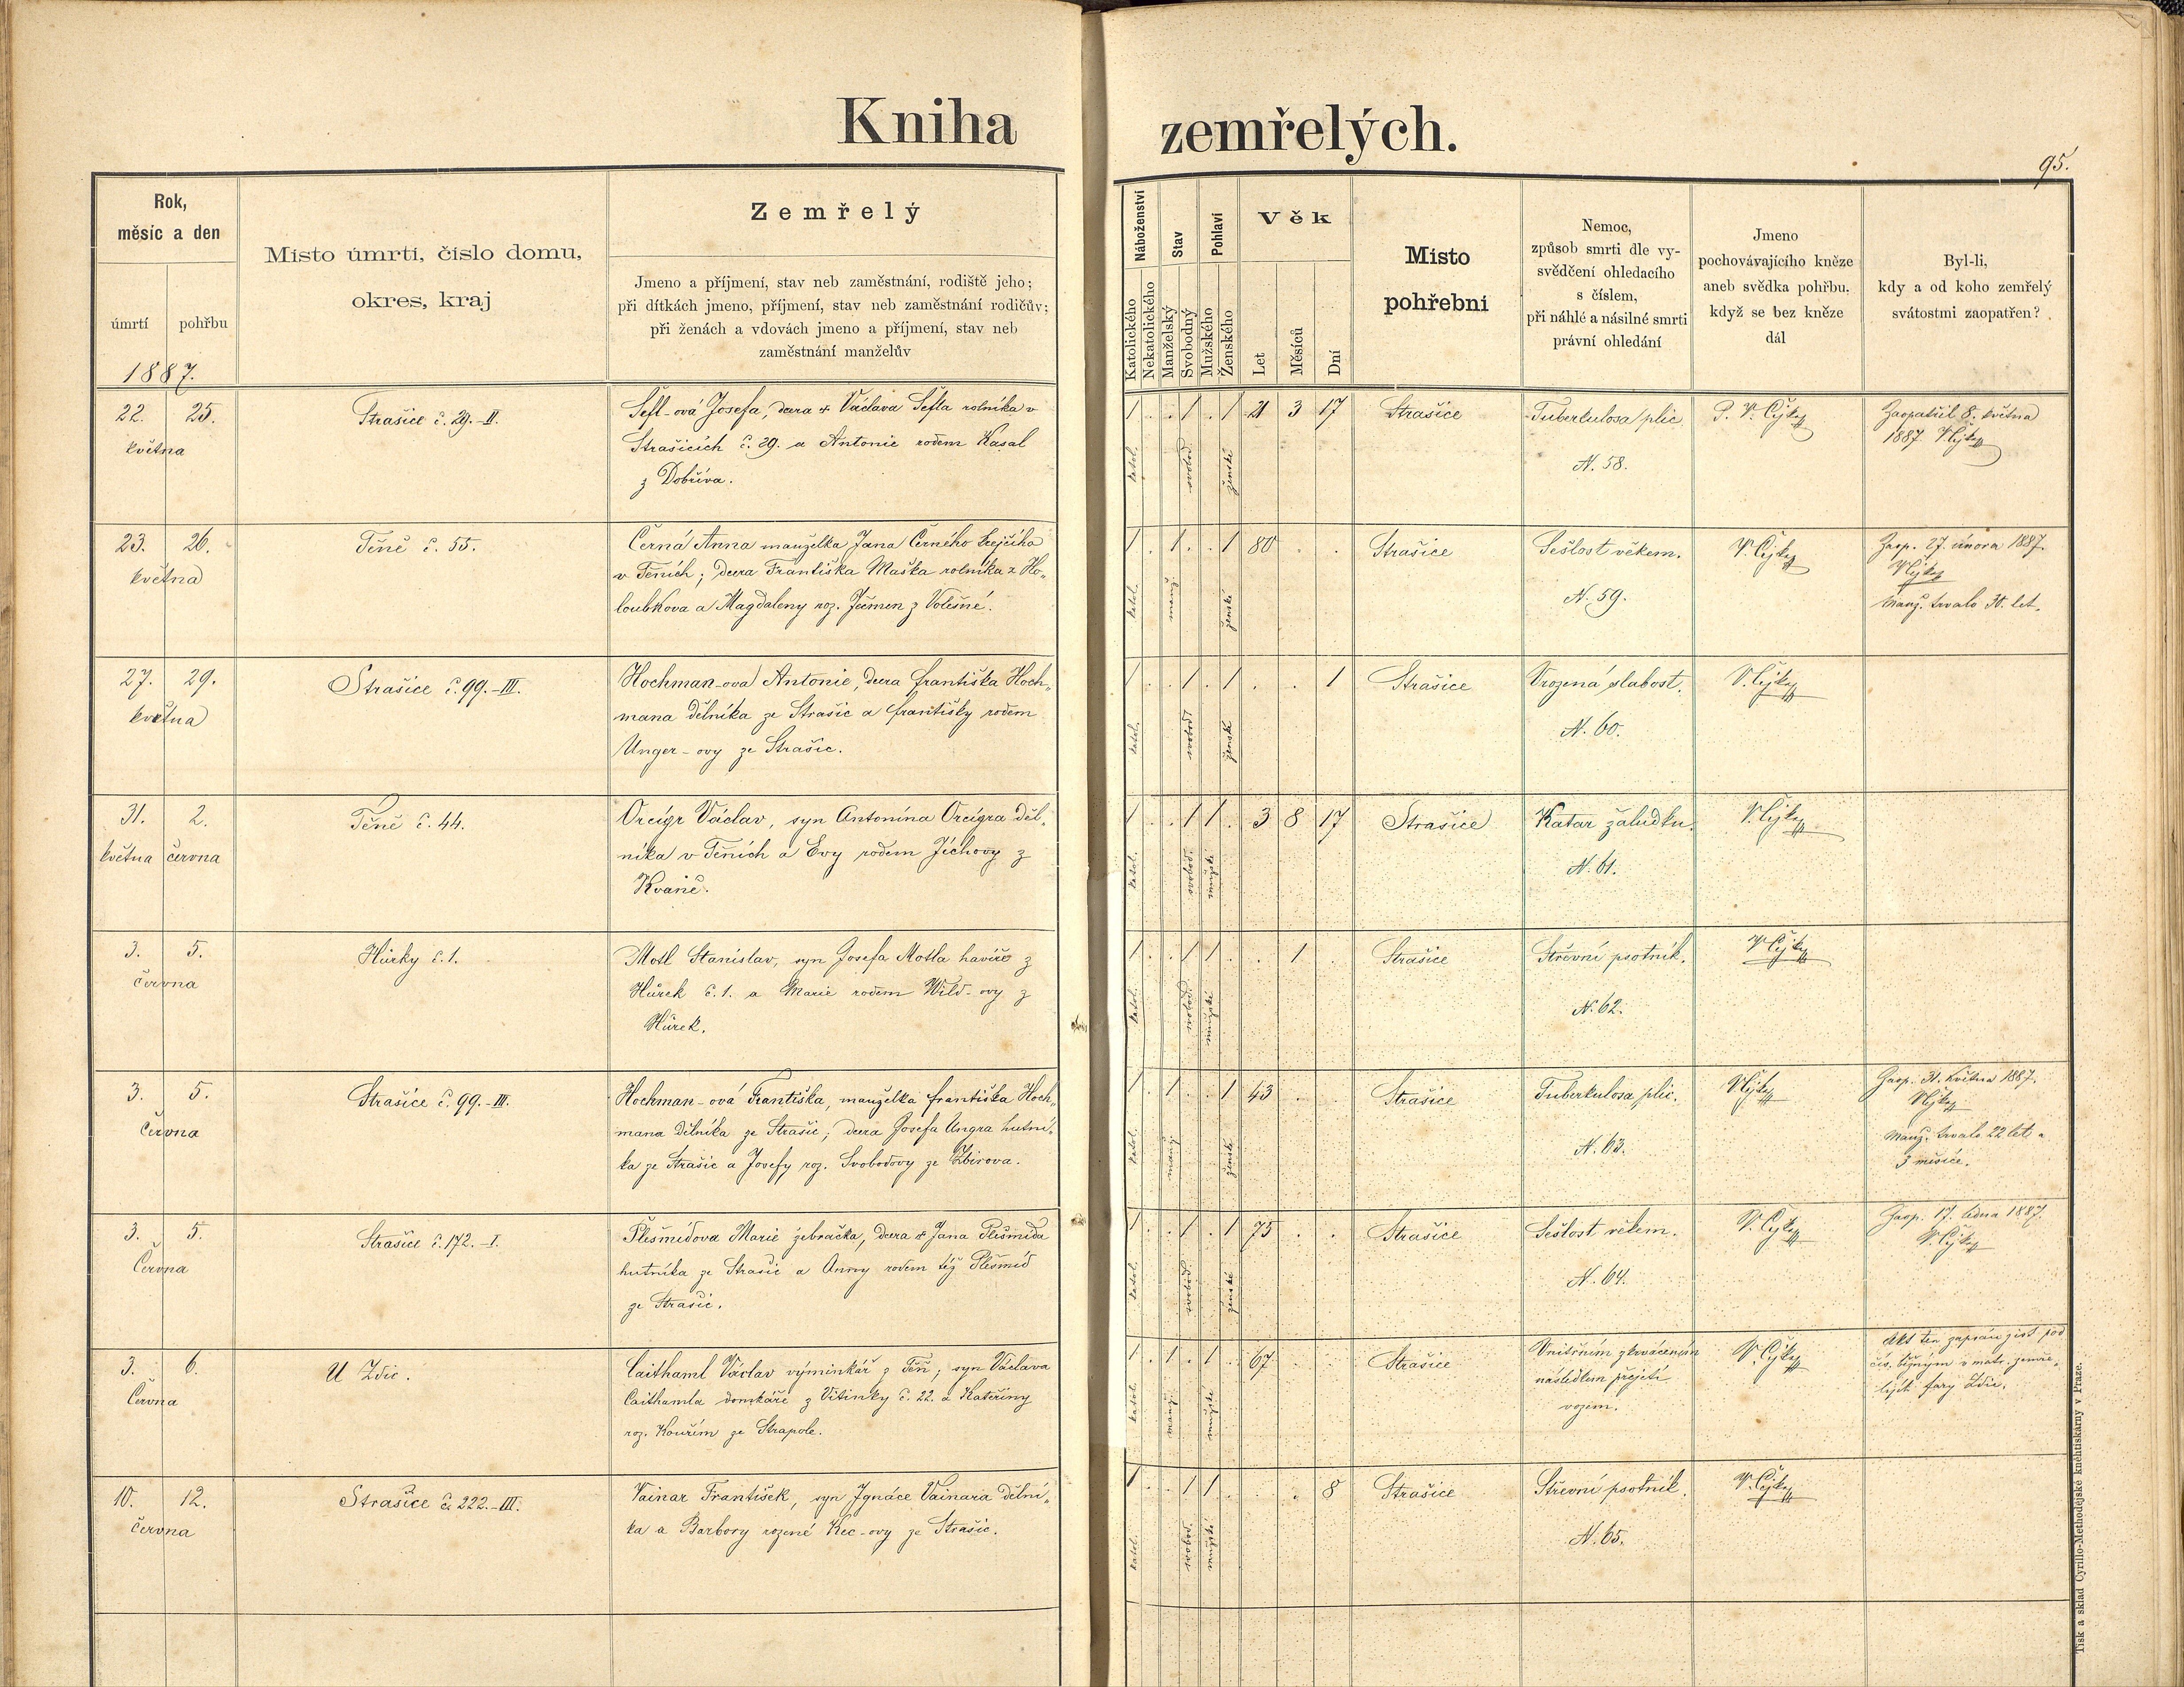 Kniha zemřelých.
95.
Rok,
měsíc a den
úmrtí
pohřbu
1887.
Místo úmrtí, číslo domu,
okres, kraj
Zemřelý
Jmeno a příjmení, stav neb zaměstnání, rodiště jeho;
při dítkách jmeno, příjmení, stav neb zaměstnání rodičův;
při ženách a vdovách jmeno a příjmení, stav neb
zaměstnání manželův
Náboženství
Katolického
Nekatolického
Stav
Manželský
Svobodný
Pohlaví
Mužského
Ženského
Věk
Let
Měsíců
Dní
Místo
pohřební
Nemoc,
způsob smrti dle vy-
svědčení ohledacího
s číslem,
při náhlé a násilné smrti
právní ohledání
Jmeno
pochovávajícího kněze
aneb svědka pohřbu,
když se bez kněze
dál
Byl-li,
kdy a od koho zemřelý
svátostmi zaopatřen?
22. 25.
května
Strašice č. 29.-II.
Šefl-ová Josefa, dcera + Václava Šefla rolníka v
Strašicích č. 29. a Antonie rodem Kasal
z Dobříva.
1 . . 1 . 1 21 3 17
katol. svobod. ženské
Strašice
Tuberkulosa plic
N. 58.
P. V. Čejka
Zaopatřil 8. května
1887 V. Čejka
23. 26.
května
Těně č. 55.
Černá Anna manželka Jana Černého krejčího
v Těních; dcera Františka Maška rolníka z Ho-
loubkova a Magdaleny roz. Ječmen z Volešné.
1 . 1 . . 1 80 . .
katol. manž. ženské
Strašice
Sešlost věkem.
N. 59.
V. Čejka
Zaop. 27. února 1887.
V. Čejka
Manž. trvalo 30. let.
27. 29.
května
Strašice č. 99.-III.
Hochman-ová Antonie, dcera Františka Hoch-
mana dělníka ze Strašic a Františky rodem
Unger-ovy ze Strašic.
1 . . 1 . 1 . . 1
katol. svobod. ženské
Strašice
Vrozená slabost.
N. 60.
V. Čejka
31. 2.
května června
Těně č. 44.
Orcígr Václav, syn Antonína Orcígra děl-
níka v Těních a Evy rodem Jíchovy z
Kvaně.
1 . . 1 1 . 3 8 17
katol. svobod. mužské
Strašice
Katar žaludku.
N. 61.
V. Čejka
3. 5.
června
Hůrky č. 1.
Motl Stanislav, syn Josefa Motla havíře z
Hůrek č. 1. a Marie rodem Wild-ovy z
Hůrek.
1 . . 1 1 . . 1 .
katol. svobod. mužské
Strašice
Střevní psotník.
N. 62.
V. Čejka
3. 5.
Června
Strašice č. 99.-III.
Hochman-ová Františka, manželka Františka Hoch-
mana dělníka ze Strašic; dcera Josefa Ungra hutní-
ka ze Strašic a Josefy roz. Svobodovy ze Zbirova.
1 . 1 . . 1 43 . .
katol. manž. ženské
Strašice
Tuberkulosa plic.
N. 63.
V. Čejka
Zaop. 31. května 1887.
V. Čejka
Manž. trvalo 22 let a
3 měsíce.
3. 5.
Června
Strašice č. 172.-I.
Plešmídova Marie žebračka, dcera + Jana Plešmída
hutníka ze Strašic a Anny rodem též Plešmíd
ze Strašic.
1 . . 1 . 1 75 . .
katol. svobod. ženské
Strašice
Sešlost věkem.
N. 64.
V. Čejka
Zaop. 17. ledna 1887.
V. Čejka
3. 6.
Června
U Zdic.
Caithaml Václav výminkář z Těň; syn Václava
Caithamla domkáře z Vitinky č. 22. a Kateřiny
roz. Kouřím ze Strapole.
1 . 1 . 1 . 67 . .
katol. manž. mužské
Strašice
Vnitřním zkrvácením
následkem přejetí
vozem.
V. Čejka
Akt ten zapsán jest pod
čís. běžným v matr. zemře-
lých fary Zdic.
10. 12.
června
Strašice č. 222.-III.
Vainar František, syn Ignáce Vainara dělní-
ka a Barbory rozené Kec-ovy ze Strašic.
1 . . 1 1 . . . 8
katol. svobod. mužské
Strašice
Střevní psotník.
N. 65.
V. Čejka
Tisk a sklad Cyrillo-Methodějské knihtiskárny v Praze.